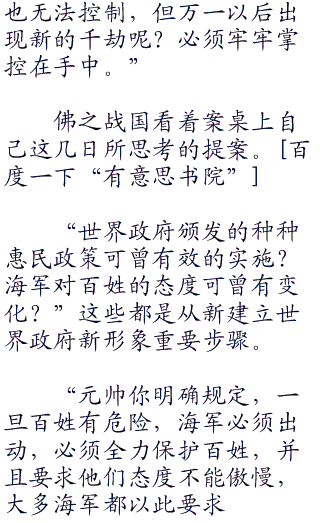 也无法控制，但万一以后出
现新的千劫呢？必须牢牢掌
控在手中。”
佛之战国看着案桌上自
己这几日所思考的提案。[百
度一下“有意思书院”]
“世界政府颁发的种种
惠民政策可曾有效的实施？
海军对百姓的态度可曾有变
化？”这些都是从新建立世
界政府新形象重要步骤。
“元帅你明确规定，一
旦百姓有危险，海军必须出
动，必须全力保护百姓，并
且要求他们态度不能傲慢，
大多海军都以此要求